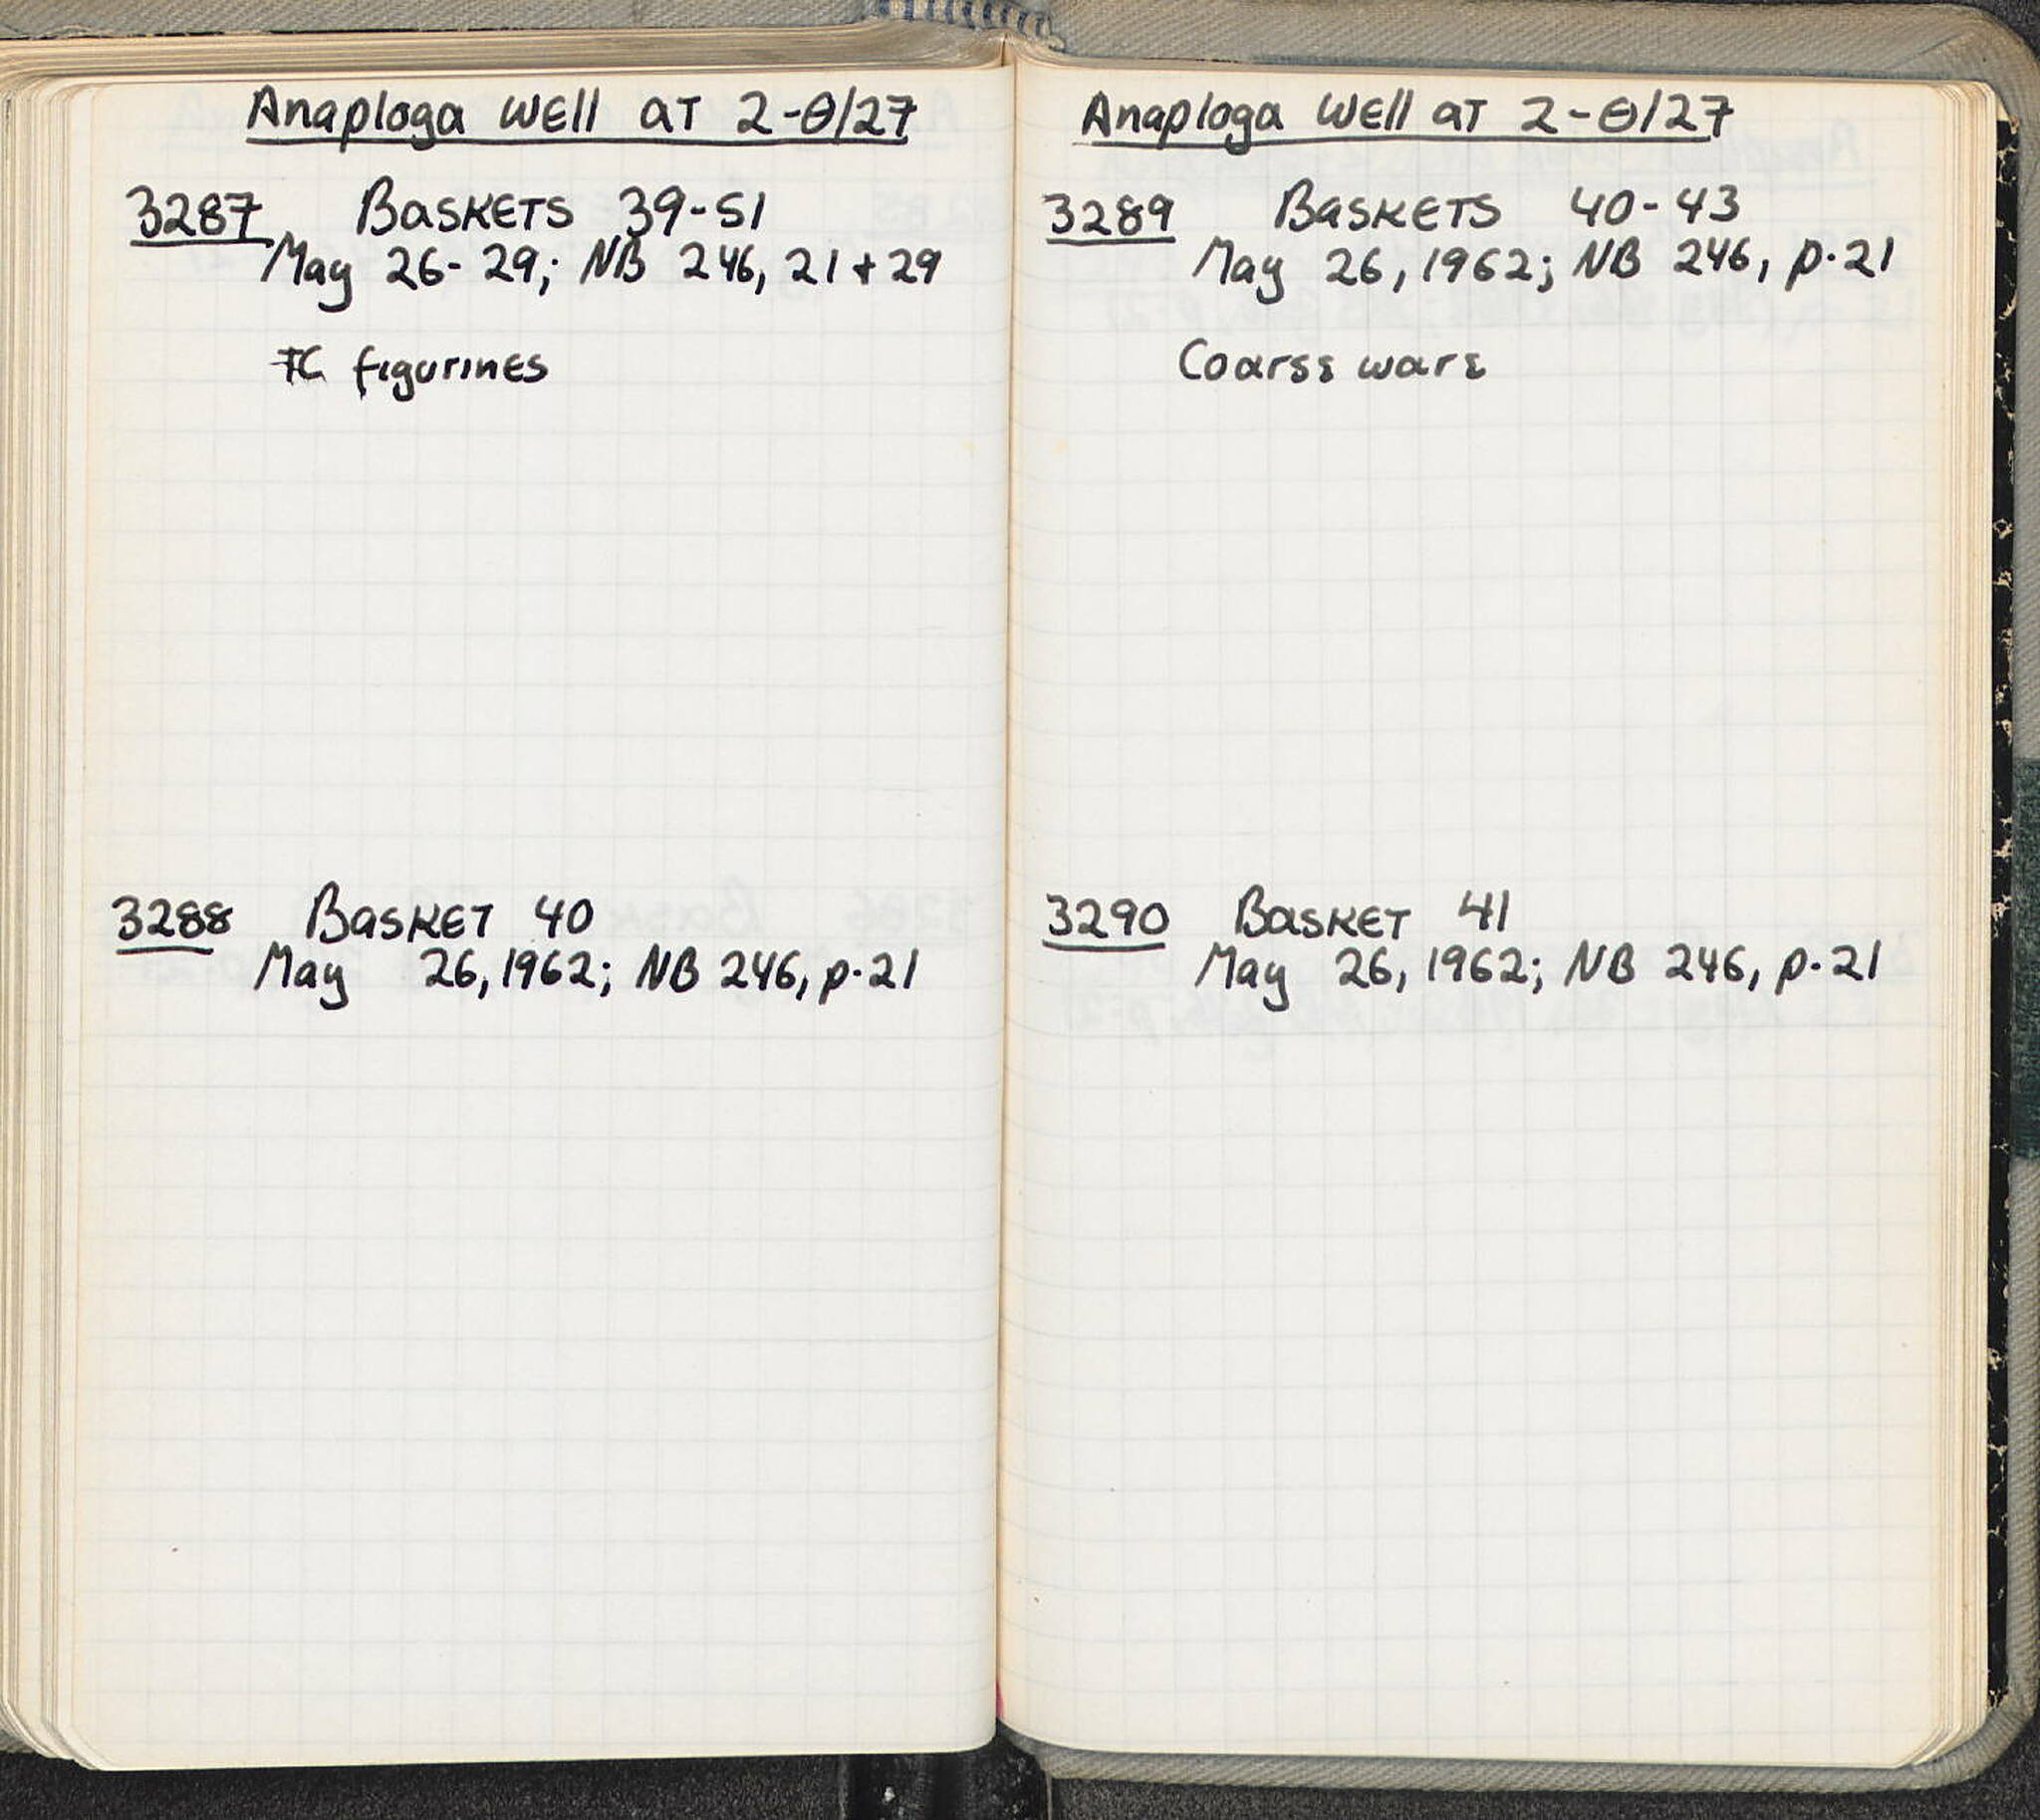 Anaploga Well at 2-Θ/27
3287 Baskets 39-51
May 26-29; NB 246, 21 + 29
TC figurines
3288 Basket 40
May 26, 1962; NB 246, p. 21
Anaploga Well at 2-Θ/27
3289 Baskets 40-43
May 26, 1962; NB 246, p. 21
Coarse ware
3290 Basket 41
May 26, 1962; NB 246, p. 21